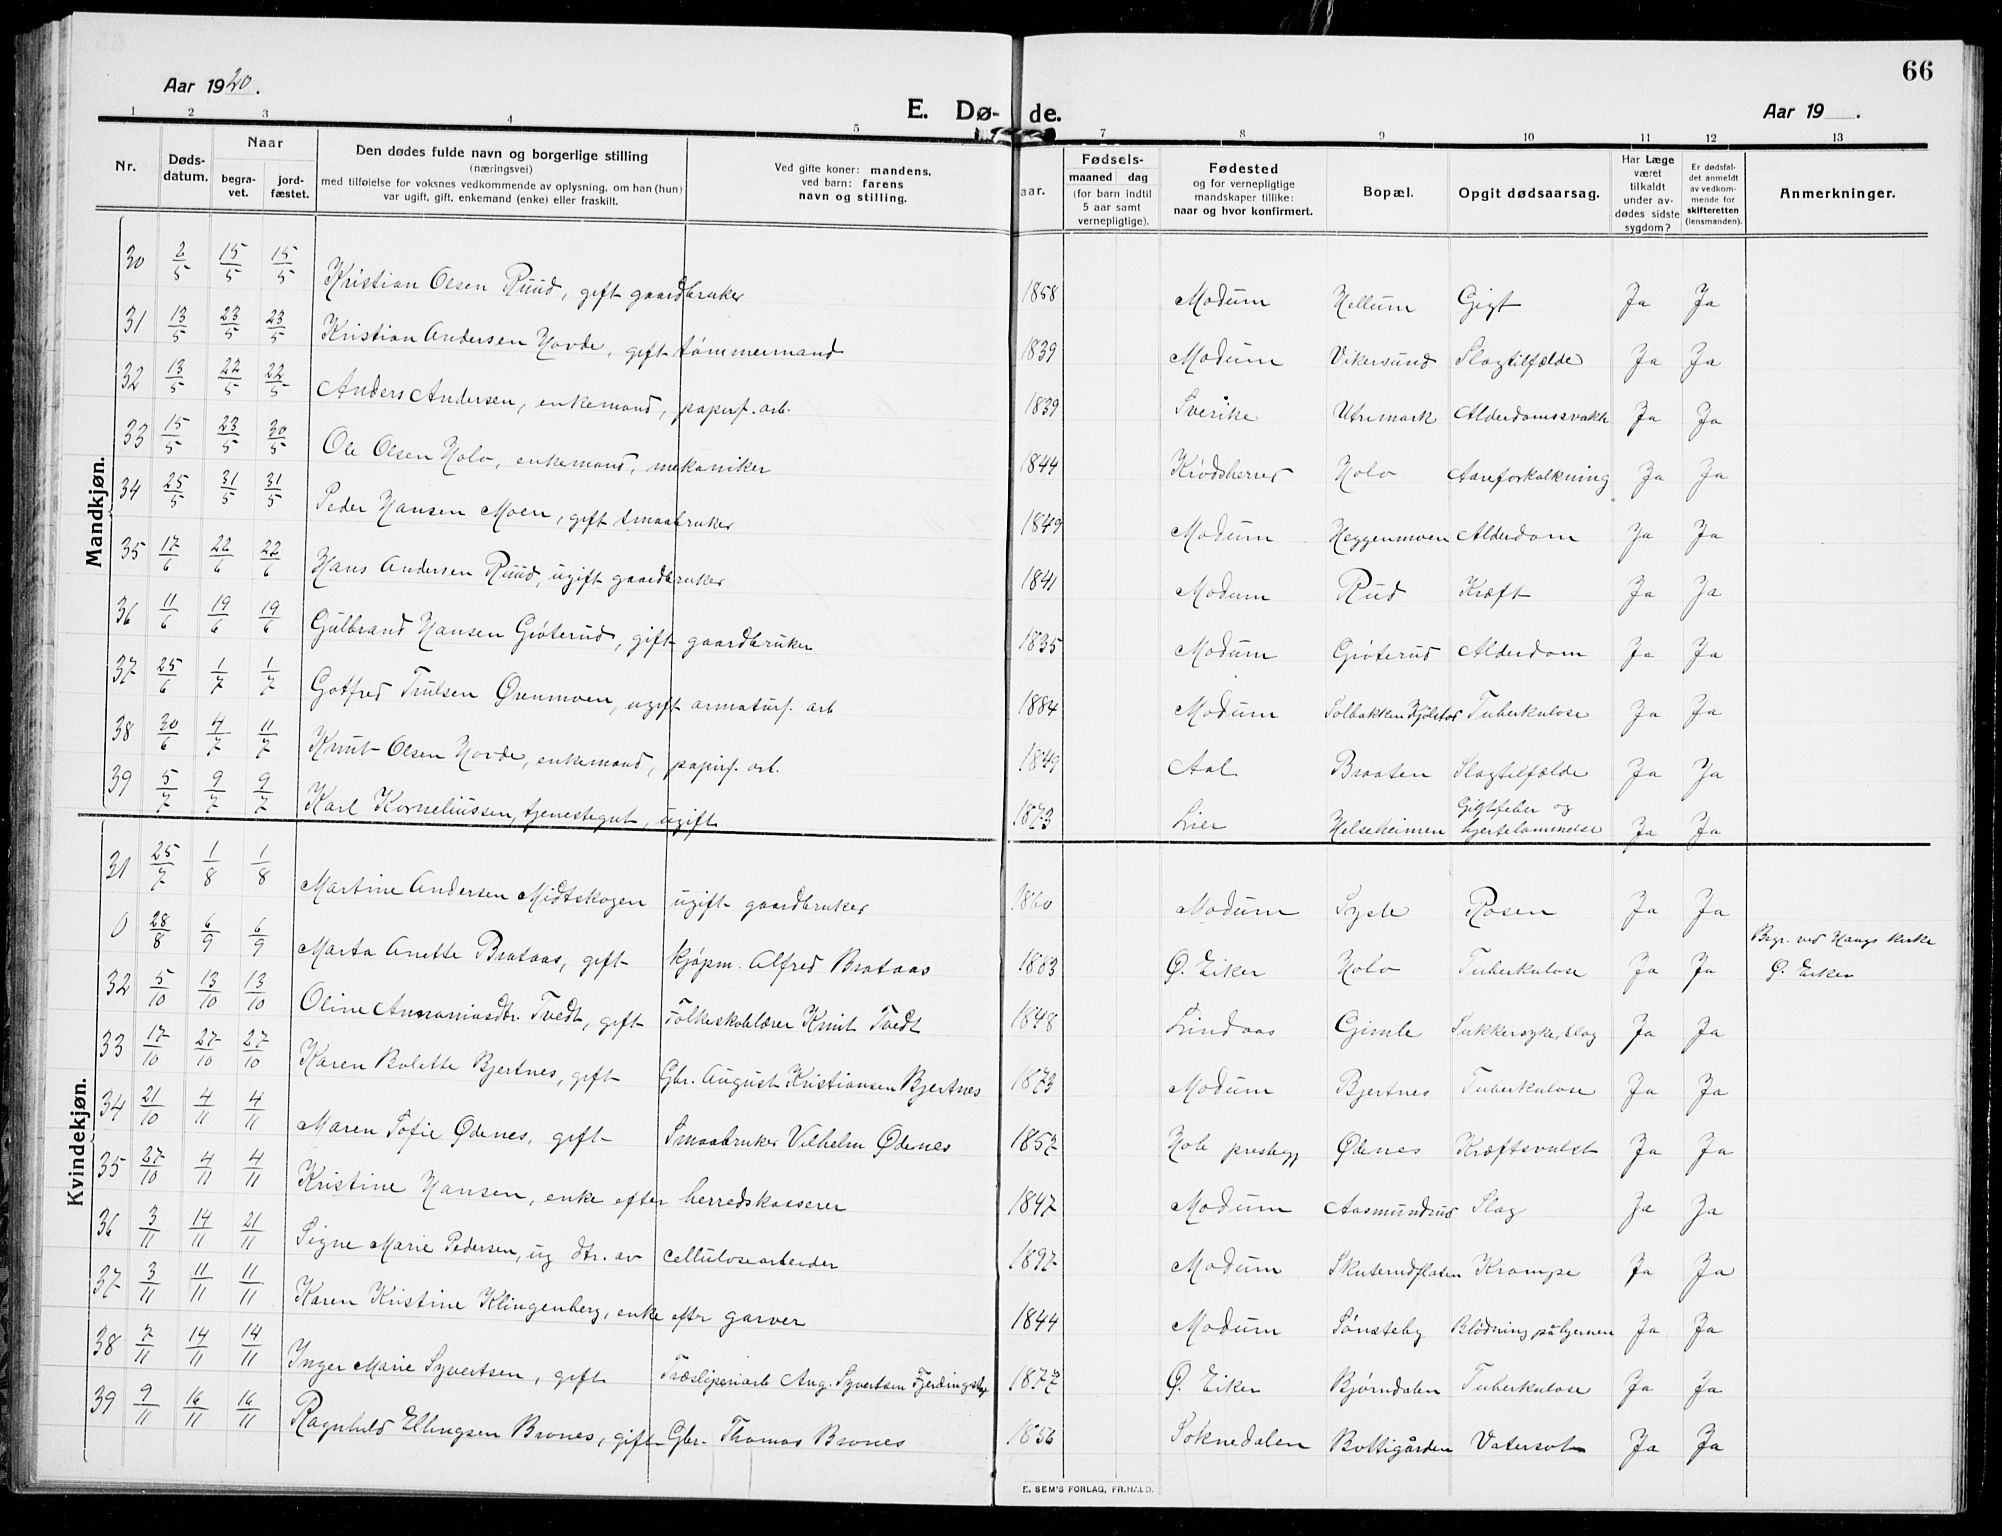 66
Aar 1920.
E. Dø- de.
Aar 19 .
1 2 3 4 5 7 8 9 10 11 12 13
Nr.
Døds-
datum.
Naar
begra-
vet.
jord-
fæstet.
Den dødes fulde navn og borgerlige stilling
(næringsvei)
med tilføielse for voksnes vedkommende av oplysning, om han (hun)
var ugift, gift, enkemand (enke) eller fraskilt.
Ved gifte koner: mandens,
ved barn: farens
navn og stilling.
aar.
Fødsels-
maaned dag
(for barn indtil
5 aar samt
vernepligtige).
Fødested
og for vernepligtige
mandskaper tillike:
naar og hvor konfirmert.
Bopæl.
Opgit dødsaarsag.
Har Læge
været
tilkaldt
under av-
dødes sidste
sygdom?
Er dødsfal-
det anmeldt
av vedkom-
mende for
skifteretten
(lensmanden).
Anmerkninger.
Mandkjøn.
30 2/5 15/5 15/5 Kristian Olsen Ruud, gift gaardbruker 1858 Modum Hellum Gigt Ja Ja
31 13/5 23/5 23/5 Kristian Andersen Hovde, gift tømmermand 1839 Modum Vikersund Slagtilfælde Ja Ja
32 13/5 22/5 22/5 Anders Andersen, enkemand, papirf. arb. 1839 Sverike Utremark Alderdomssvakh Ja Ja
33 15/5 23/5 30/5 Ole Olsen Holo, enkemand, mekaniker 1844 Krødsherred Holo Aareforkalkning Ja Ja
34 25/5 31/5 31/5 Peder Hansen Moen, gift smaabruker 1849 Modum Heggenmoen Alderdom Ja Ja
35 17/6 22/6 22/6 Hans Andersen Ruud, ugift gaardbruker 1841 Modum Rud Kræft Ja Ja
36 11/6 19/6 19/6 Gulbrand Hansen Grøterud, gift gaardbruker 1835 Modum Grøterud Alderdom Ja Ja
37 25/6 1/7 1/7 Gotfred Trulsen Ørenmoen, ugift armaturf. arb 1884 Modum Solbakken Kjølstad Tuberkulose Ja Ja
38 30/6 4/7 11/7 Knut Olsen Hovde, enkemand, papirf. arb. 1849 Aal Braaten Slagtilfælde Ja Ja
39 5/7 9/7 9/7 Karl Korneliussen, tjenestegut, ugift 1873 Lier Helseheimen Gigtfeber og hjertelammelse Ja Ja
Kvindekjøn.
31 25/7 1/8 1/8 Martine Andersen Midtskogen ugift gaardbruker 1860 Modum Sysle Rosen Ja Ja
0 28/8 6/9 6/9 Marta Anette Brataas, gift kjøpm. Alfred Brataas 1863 Ø. Eiker Holo Tuberkulose Ja Ja Begr. ved Haugs kirke Ø. Eiker
32 5/10 13/10 13/10 Oline Annaniasdtr. Tvedt, gift Folkeskolelærer Knut Tvedt 1848 Lindaas Gimle Sukkersyke, slag Ja Ja
33 17/10 27/10 27/10 Karen Bolette Bjertnes, gift Gbr. August Kristiansen Bjertnes 1873 Modum Bjertnes Tuberkulose Ja Ja
34 21/10 4/11 4/11 Maren Sofie Ødenes, gift Smaabruker Vilhelm Ødenes 1857 Hole prestegj Ødenes Kræftsvulst Ja Ja
35 27/10 4/11 4/11 Kristine Hansen, enke efter herredskasserer 1847 Modum Aasmundrud Slag Ja Ja
36 3/11 14/11 21/11 Signe Marie Pedersen, ug dtr. av cellulosearbeider 1897 Modum Skuterudflaten Krampe Ja Ja
37 3/11 11/11 11/11 Karen Kristine Klingenberg, enke efter garver 1844 Modum Sønsteby Blødning på hjernen Ja Ja
38 7/11 14/11 14/11 Inger Marie Syvertsen, gift Træsliperiarb Aug. Syvertsen Fjerdingstby 1877 Ø. Eiker Bjørndalen Tuberkulose Ja Ja
39 9/11 16/11 16/11 Ragnhild Ellingsen Brones, gift Gbr. Thomas Brones 1856 Soknedalen Bottigården Vatersot Ja Ja
E. SEM'S FORLAG, FR.HALD.